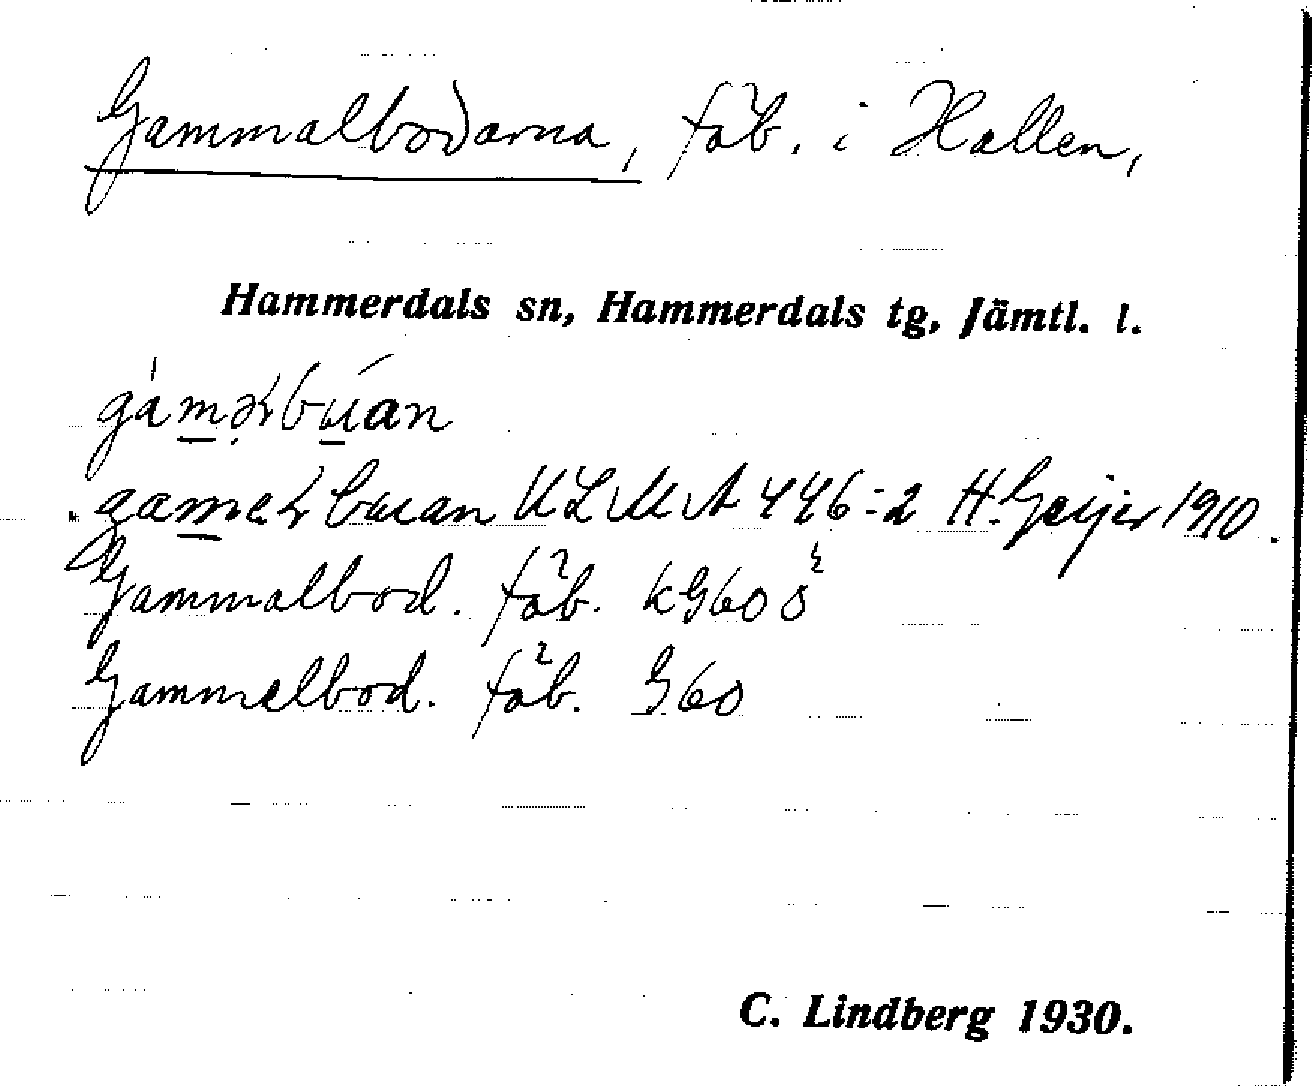 Gammalbodarna, fäb. i Hallen,
Hammerdals sn, Hammerdals tg, Jämtl. l.
ULMA 446:2 H. Geijer 1910.
Gammalbod. fäb.
Gammalbod. fäb. G60
C. Lindberg 1930.